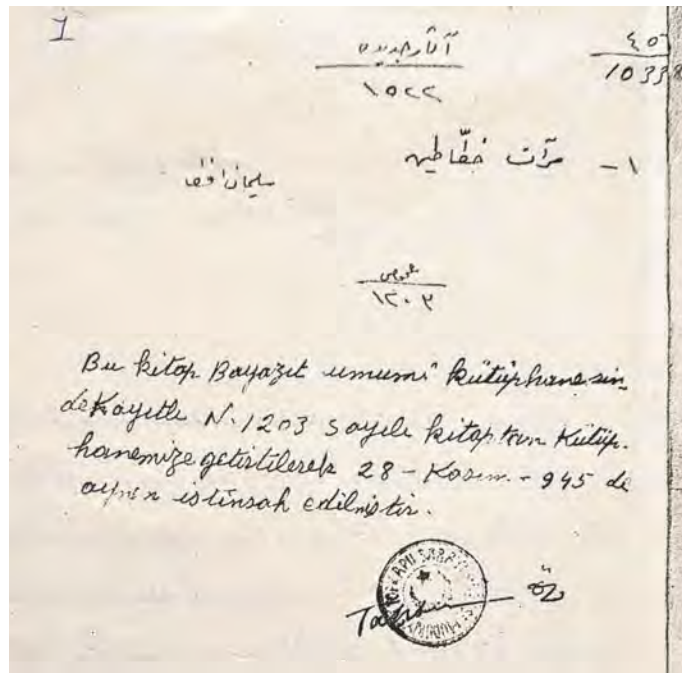 1
آثار جدیده
١٥٢٢
٤٥
10338
١ - مرآت خطاطین
سلیمان افندی
عمومی
١٢٠٣
Bu kitap Bayazıt umumî kütüphanesin
de kayıtlı N. 1203 sayılı kitaptan Kütüp.
hanemize getirtilerek 28 - Kasım - 945 de
aynen istinsah edilmiştir.
TOPKAPU SARAYI